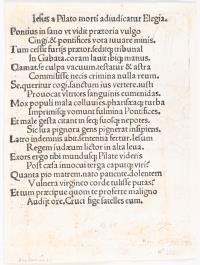 Iesus a Pilato morti adiudicatur Elegia.
Pontius in sano ut vidit prætoria vulgo
Cingi, & pontifices vota iuuare minis.
Tum cessit furijs prætor, sedit & tribunal
In Gabata. coram lauit ibiq; manus.
Clamat, se culpa vacuum, testatur & astra
Commisisse necis crimina nulla reum.
Se, queritur cogi, sanctum ius vertere, iusti
Prouocat vltrices sanguinis eumenidas.
Mox populi mala colluuies, pharisæaq; turba
Imprimisq; vomunt fulmina Pontifices.
Et male gesta citant in seq; suosq; nepotes.
Sic sua pignora gens pignerat insipiens.
Latro indemnis abit. sententia fertur. Iesum
Regem iudæum lictor in alta leua.
Exors ergo tibi mundusq; Pilate videris
Post cæsa innocui terga caputq; viri?
Quanta pio matrem, nato patiente, dolentem
Vulnera virgineo corde tulisse putas?
Et tum præcipue quom te proferre maligno
Audijt ore, Cruci fige satelles eum.